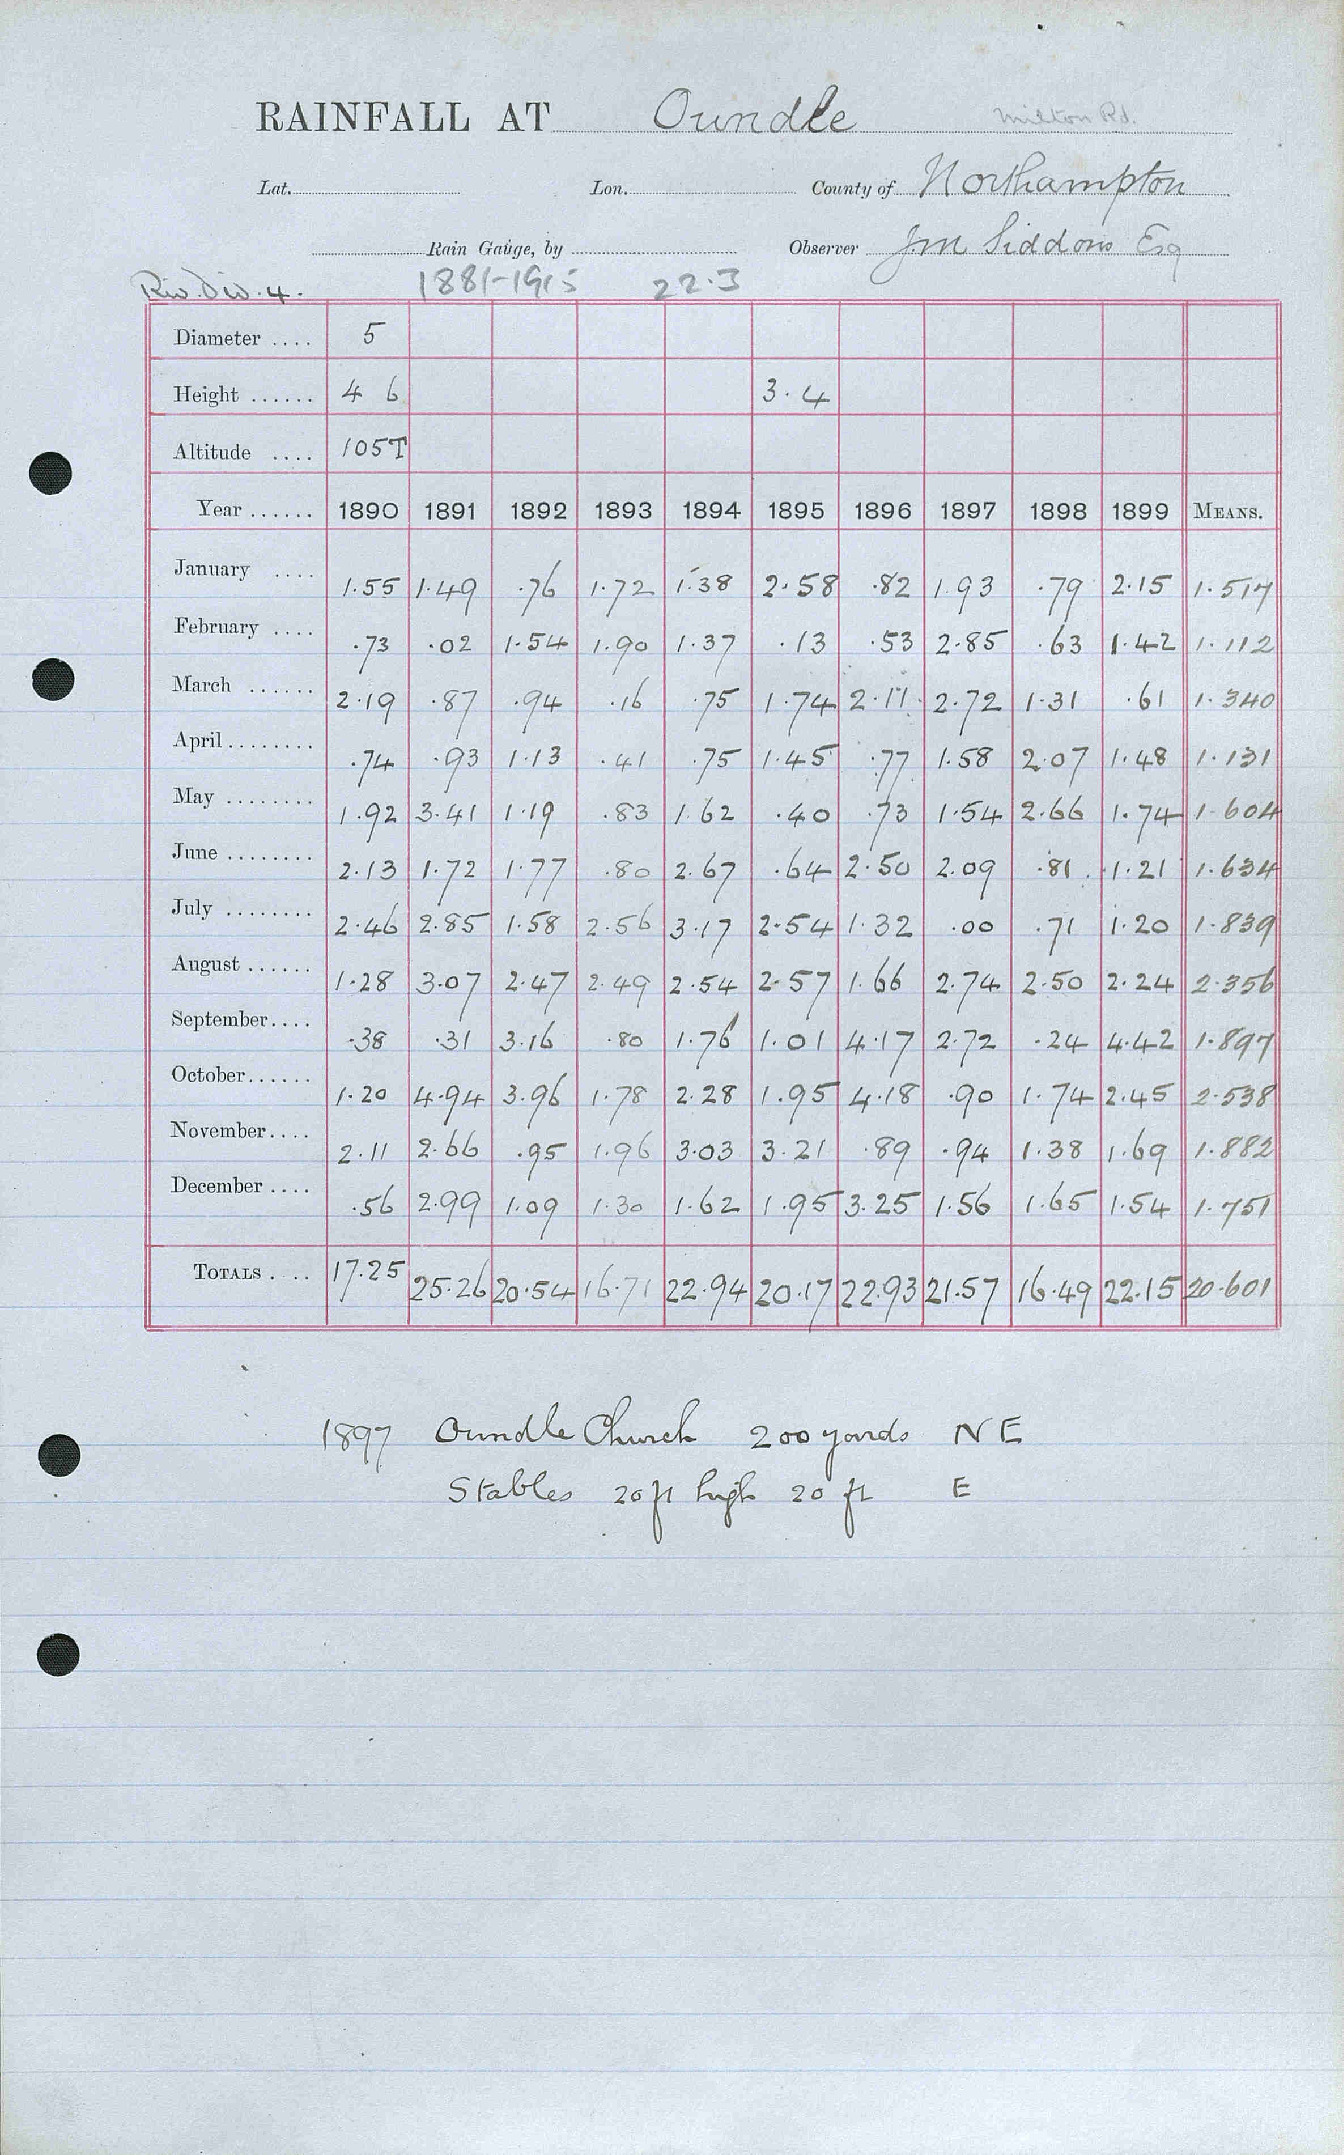 RAINFALL AT Oundle Milton Rd.
Lat. Lon. County of Northampton
Rain Gauge, by Observer J.M Siddons Esq
Riv. Div. 4. 1881-1915 22.3
Diameter .... 5
Height ...... 4 6 3.4
Altitude .... 105T
Year ...... 1890 1891 1892 1893 1894 1895 1896 1897 1898 1899 MEANS.
January .... 1.55 1.49 .76 1.72 1.38 2.58 .82 1.93 .79 2.15 1.517
February .... .73 .02 1.54 1.90 1.37 .13 .53 2.85 .63 1.42 1.112
March ...... 2.19 .87 .94 .16 .75 1.74 2.11 2.72 1.31 .61 1.340
April ........ .74 .93 1.13 .41 .75 1.45 .77 1.58 2.07 1.48 1.131
May ........ 1.92 3.41 1.19 .83 1.62 .40 .73 1.54 2.66 1.74 1.604
June ........ 2.13 1.72 1.77 .80 2.67 .64 2.50 2.09 .81 1.21 1.634
July ........ 2.46 2.85 1.58 2.56 3.17 2.54 1.32 .00 .71 1.20 1.839
August ...... 1.28 3.07 2.47 2.49 2.54 2.57 1.66 2.74 2.50 2.24 2.356
September.... .38 .31 3.16 .80 1.76 1.01 4.17 2.72 .24 4.42 1.897
October...... 1.20 4.94 3.96 1.78 2.28 1.95 4.18 .90 1.74 2.45 2.538
November.... 2.11 2.66 .95 1.96 3.03 3.21 .89 .94 1.38 1.69 1.882
December .... .56 2.99 1.09 1.30 1.62 1.95 3.25 1.56 1.65 1.54 1.751
TOTALS .... 17.25 25.26 20.54 16.71 22.94 20.17 22.93 21.57 16.49 22.15 20.601
1897 Oundle Church 200 yards NE
Stables 20 ft high 20 ft E